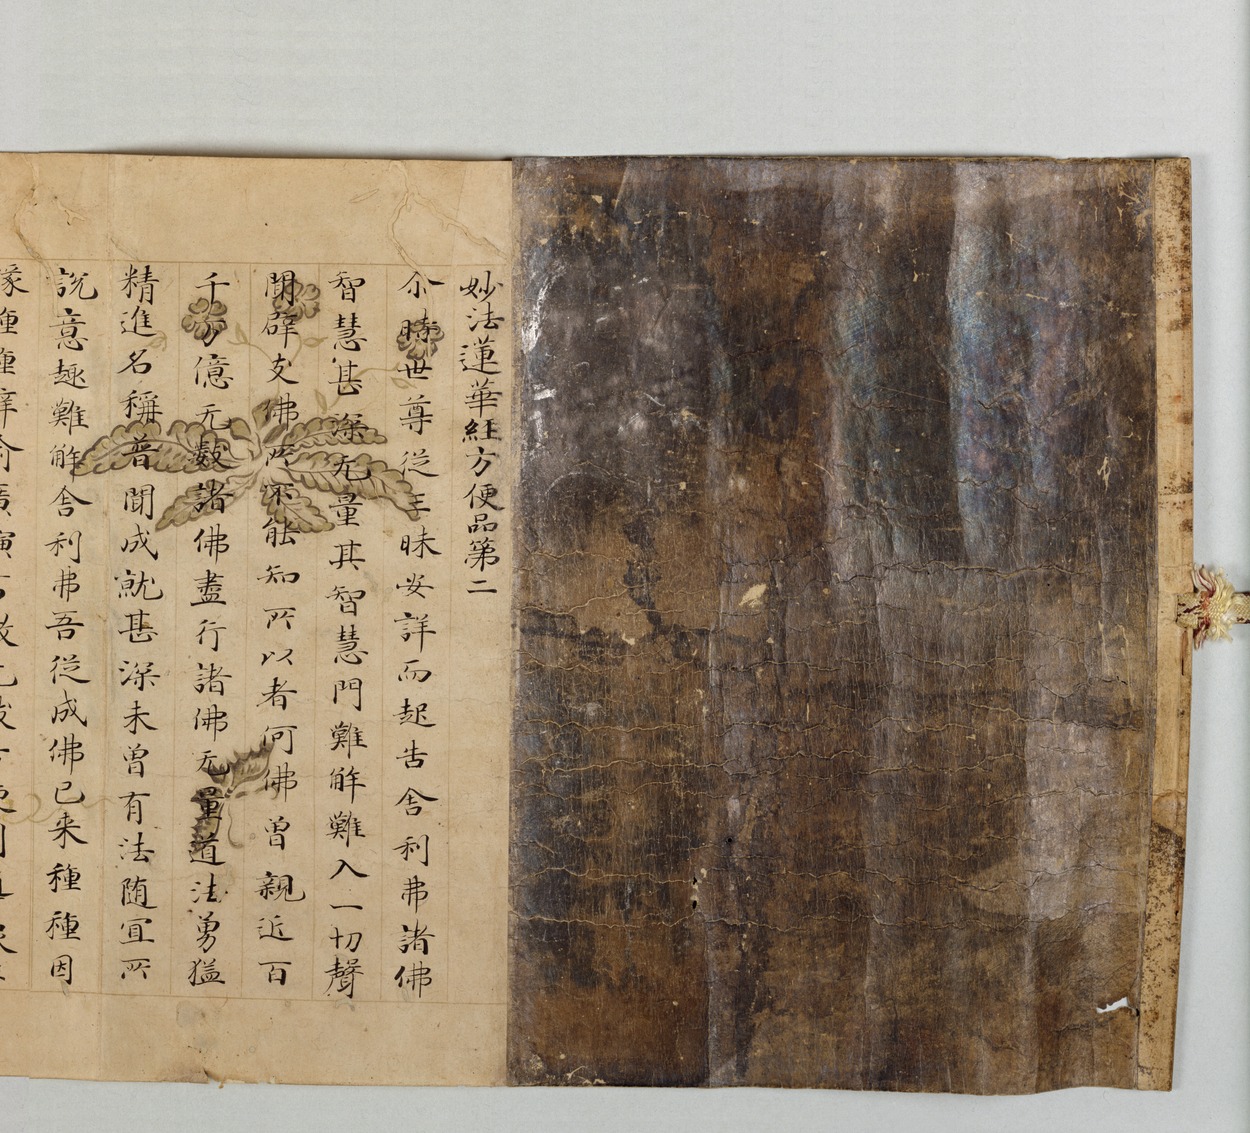 妙法蓮華經方便品第二
尒時世尊從三昧安詳而起告舍利弗諸佛
智慧甚深无量其智慧門難解難入一切聲
聞辟支佛所不能知所以者何佛曾親近百
千万億无數諸佛盡行諸佛无量道法勇猛
精進名稱普聞成就甚深未曾有法随宜所
說意趣難解舍利弗吾從成佛已来種種因